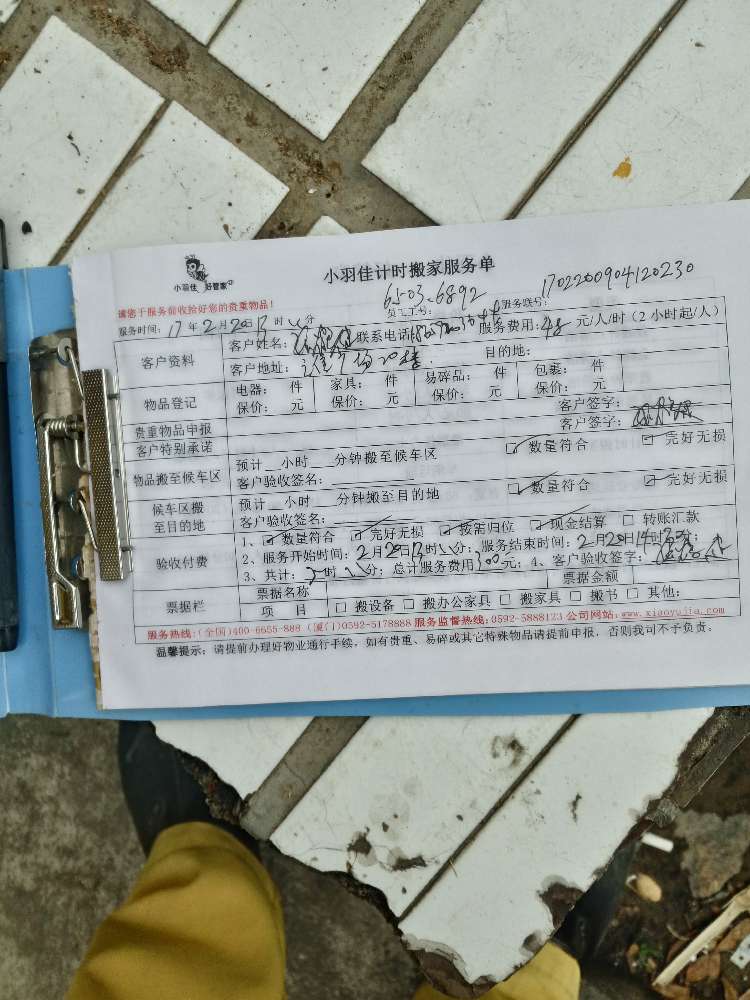 小羽佳 好管家
小羽佳计时搬家服务单
请您于服务前收拾好您的贵重物品!
员工工号: 6503.6892
服务联号: 1702200904120230
服务时间: 17年2月20日13时 分
服务费用: 48元/人/时(2小时起/人)
客户资料
客户姓名: 联系电话
客户地址: 目的地:
物品登记
电器: 件 家具: 件 易碎品: 件 包裹: 件
保价: 元 保价: 元 保价: 元 保价: 元
贵重物品申报 客户签字:
客户特别承诺 客户签字:
物品搬至候车区
预计__小时__分钟搬至候车区 ☑ 数量符合 ☑ 完好无损
客户验收签名:
候车区搬至目的地
预计__小时__分钟搬至目的地 ☑ 数量符合 ☑ 完好无损
客户验收签名:
验收付费
1、☑ 数量符合 ☑ 完好无损 ☑ 按需归位 ☑ 现金结算 □ 转账汇款
2、服务开始时间: 2月20日13时 分; 服务结束时间: 2月20日14时30分;
3、共计: 2时 分; 总计服务费用300元; 4、客户验收签字:
票据栏
票据名称 票据金额
项 目 □ 搬设备 □ 搬办公家具 □ 搬家具 □ 搬书 □ 其他:
服务热线:(全国)400-6655-888 (厦门)0592-5178888 服务监督热线:0592-5888123 公司网站:www.xiaoyujia.com
温馨提示: 请提前办理好物业通行手续,如有贵重、易碎或其它特殊物品请提前申报,否则我司不予负责。